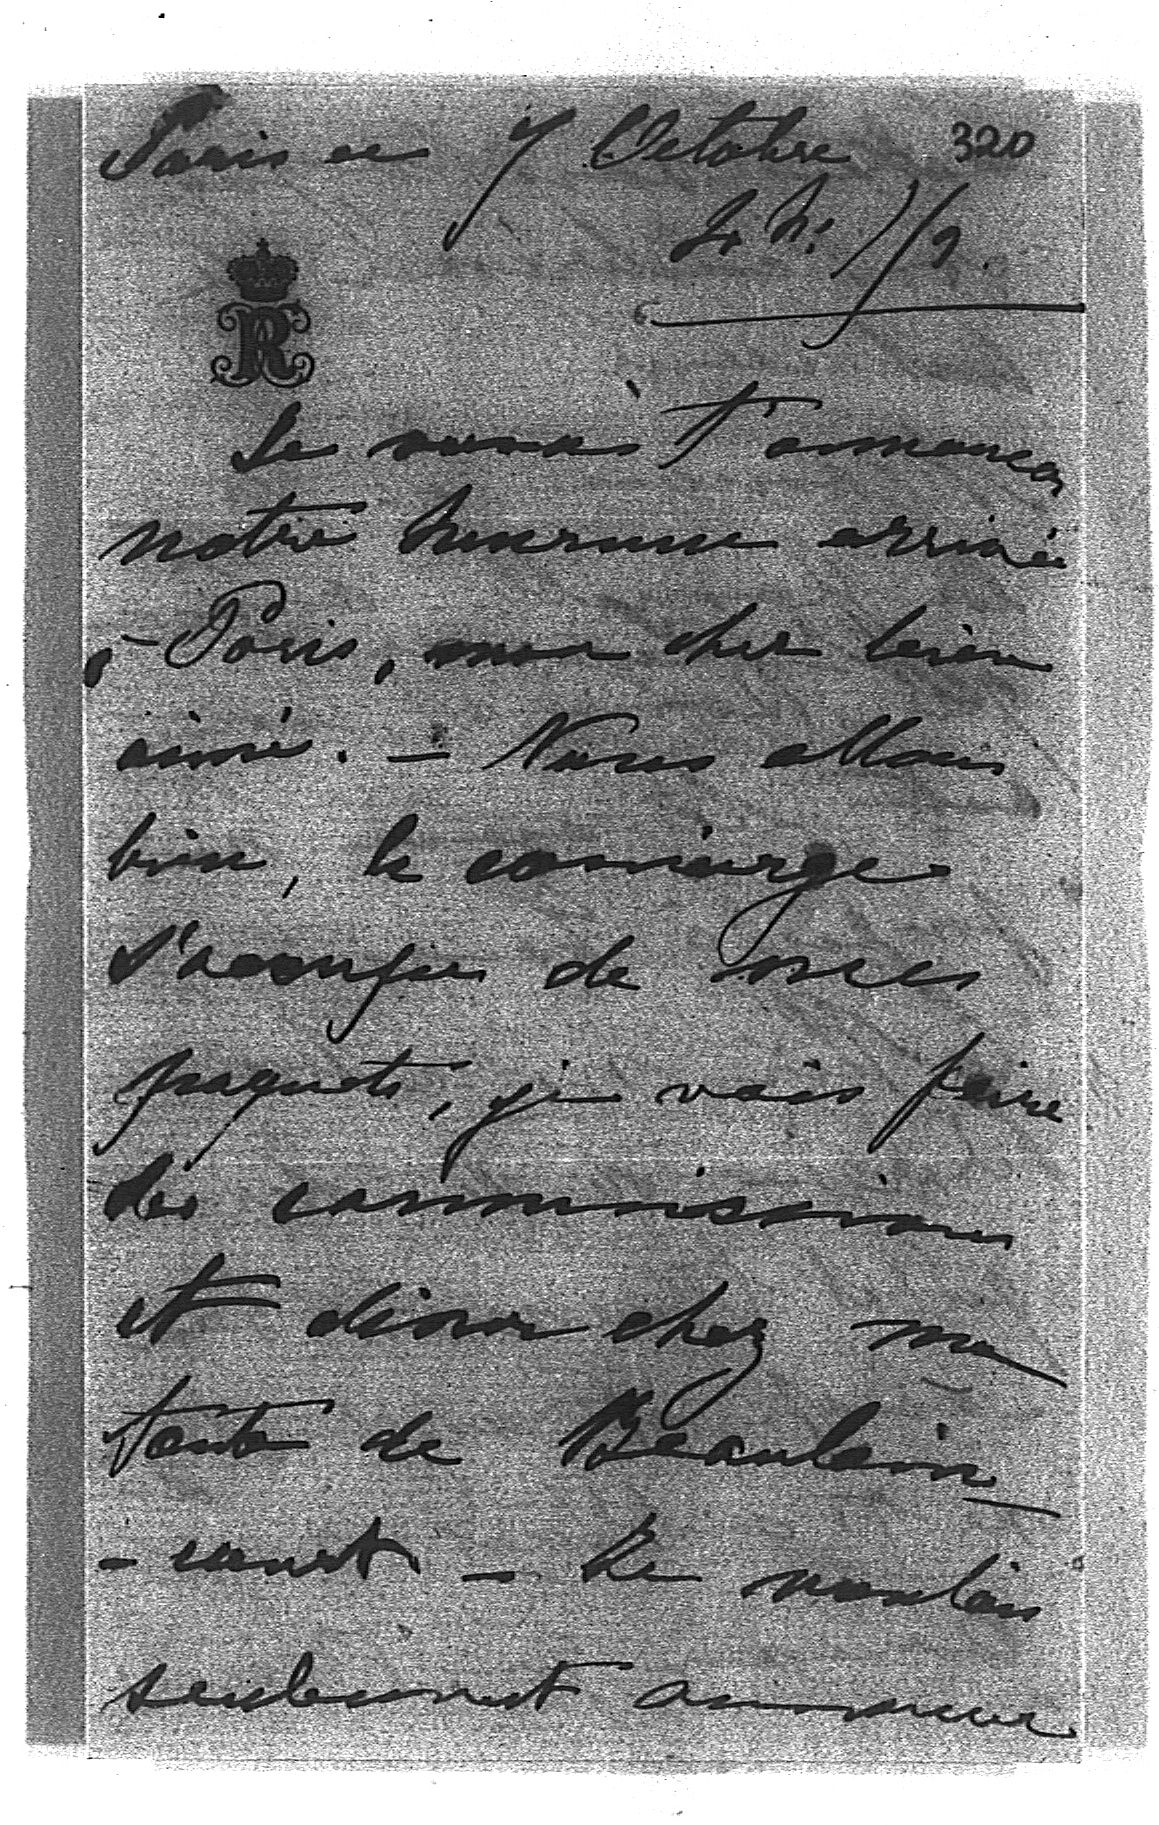 Paris ce 7 Octobre 320
2 h. 1/2.
R
Je viens t'annoncer
notre heureuse arrivée
à Paris, mon cher bien
aimé. - Nous allons
bien, le concierge
s'occupe de mes
paquets, je vais faire
des commissions
et diner chez ma
tante de Beaulain
- court - Je voulais
seulement annoncer